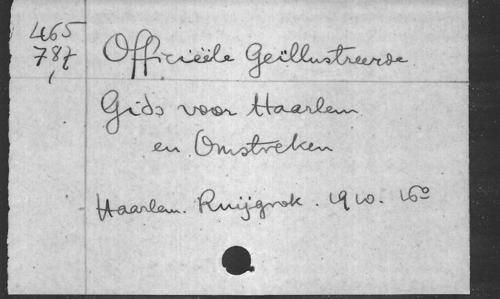 465
787
Officieële Geïllustreerde
Gids voor Haarlem
en Omstreken
Haarlem. Ruijgrok. 1910. 16°